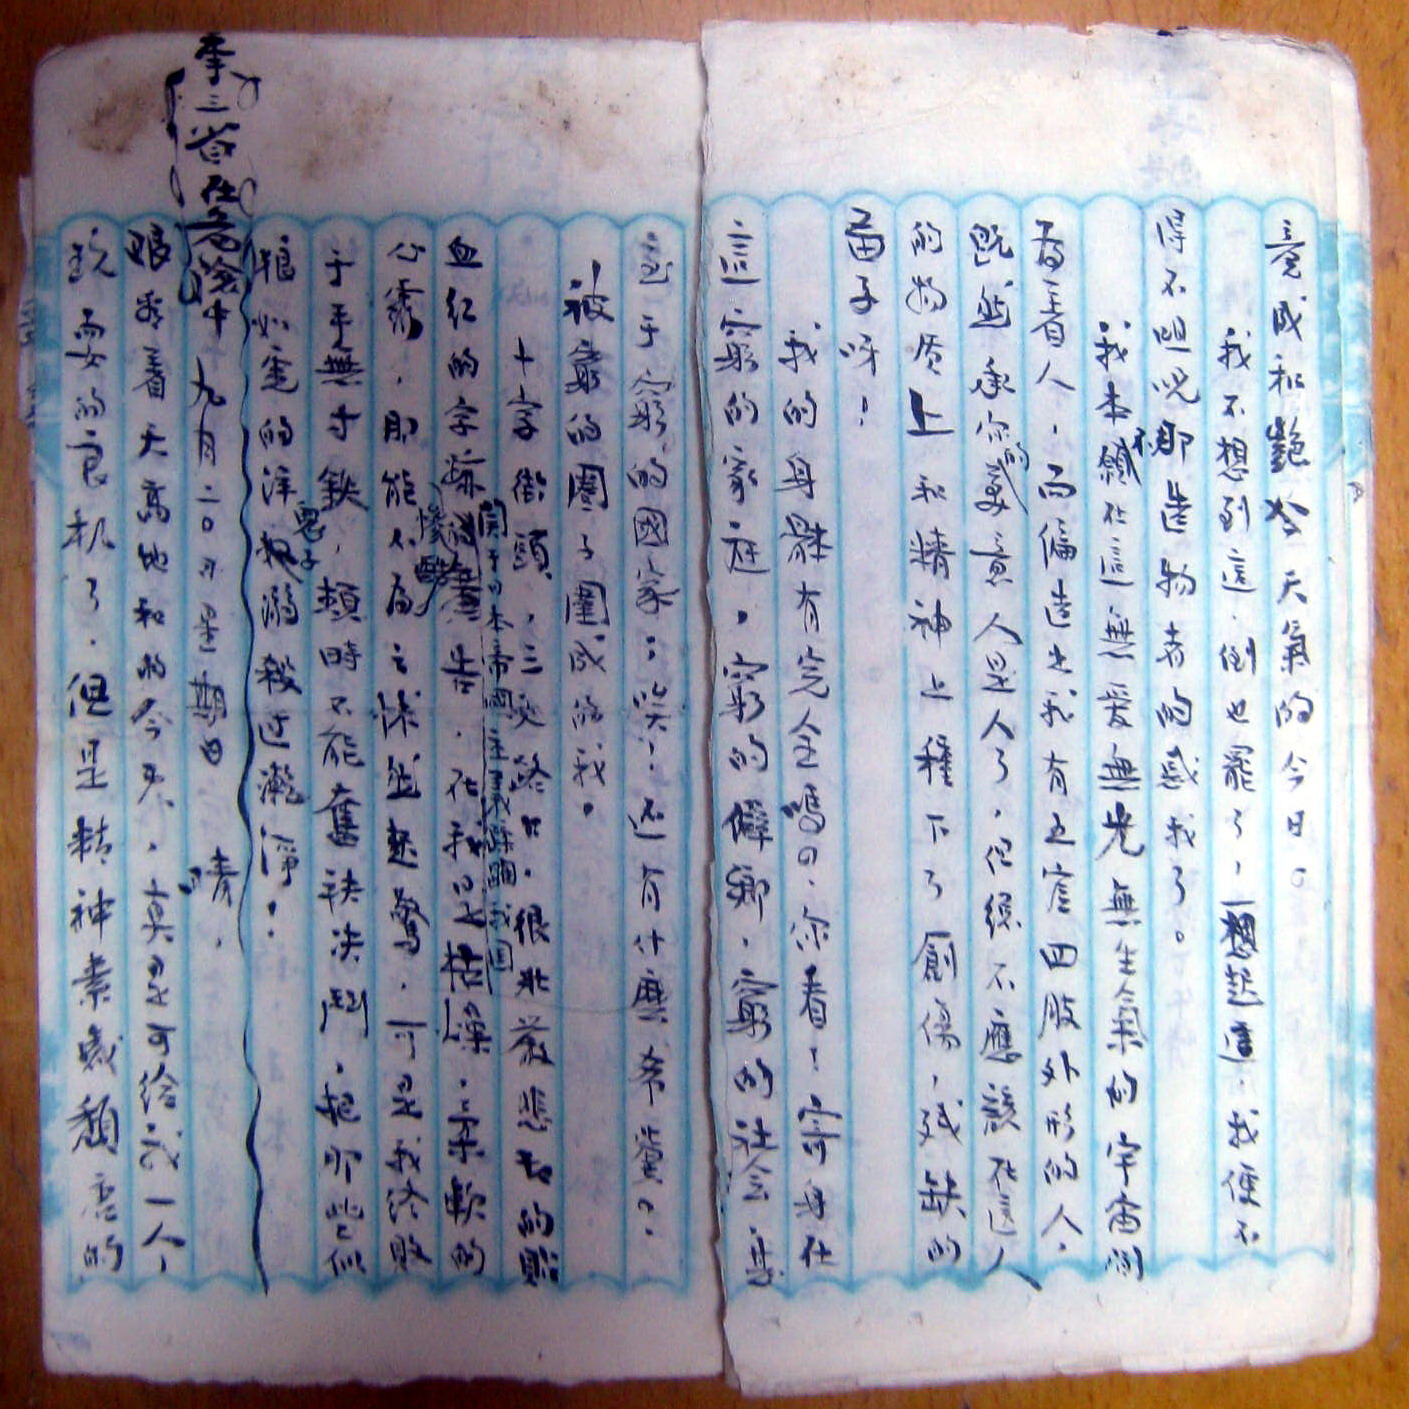 竟成和艷冷天氣的今日。
我不想到這，倒也罷了，一想起這，我便不
得不咀咒那造物者的惑我了。
我本不願在這無爱無光無生氣的宇宙間
為着人，而偏造之我有五官四肢外形的人，
既然承你的美意人是人了，但總不應該在這人
的物质上和精神上種下了創傷，残缺的
苗子呀！
我的身體有完全嗎？你看！寄身在
這窮的家庭，窮的僻鄉，窮的社会，甚
至于窮的國家；唉！还有什麽希冀？
被窮的圈子圍成的我。
十字街頭，三叉路口，很壯嚴悲切的貼
血紅的字
關于日本帝國主義
告，在我是枯燥，柔軟的
心靈，即能不為之悚然起驚，可是我終敗
慘酷
于手無寸鉄，頼時不能奮袂决鬥，把那些似
狼如
的洋
鬼子
殺
净！
李三省在危險中
九月二〇日星期日 晴，
眼看着天高地和的今天，真是可給我一人
玩耍的良机了，但是精神素感頽唐的